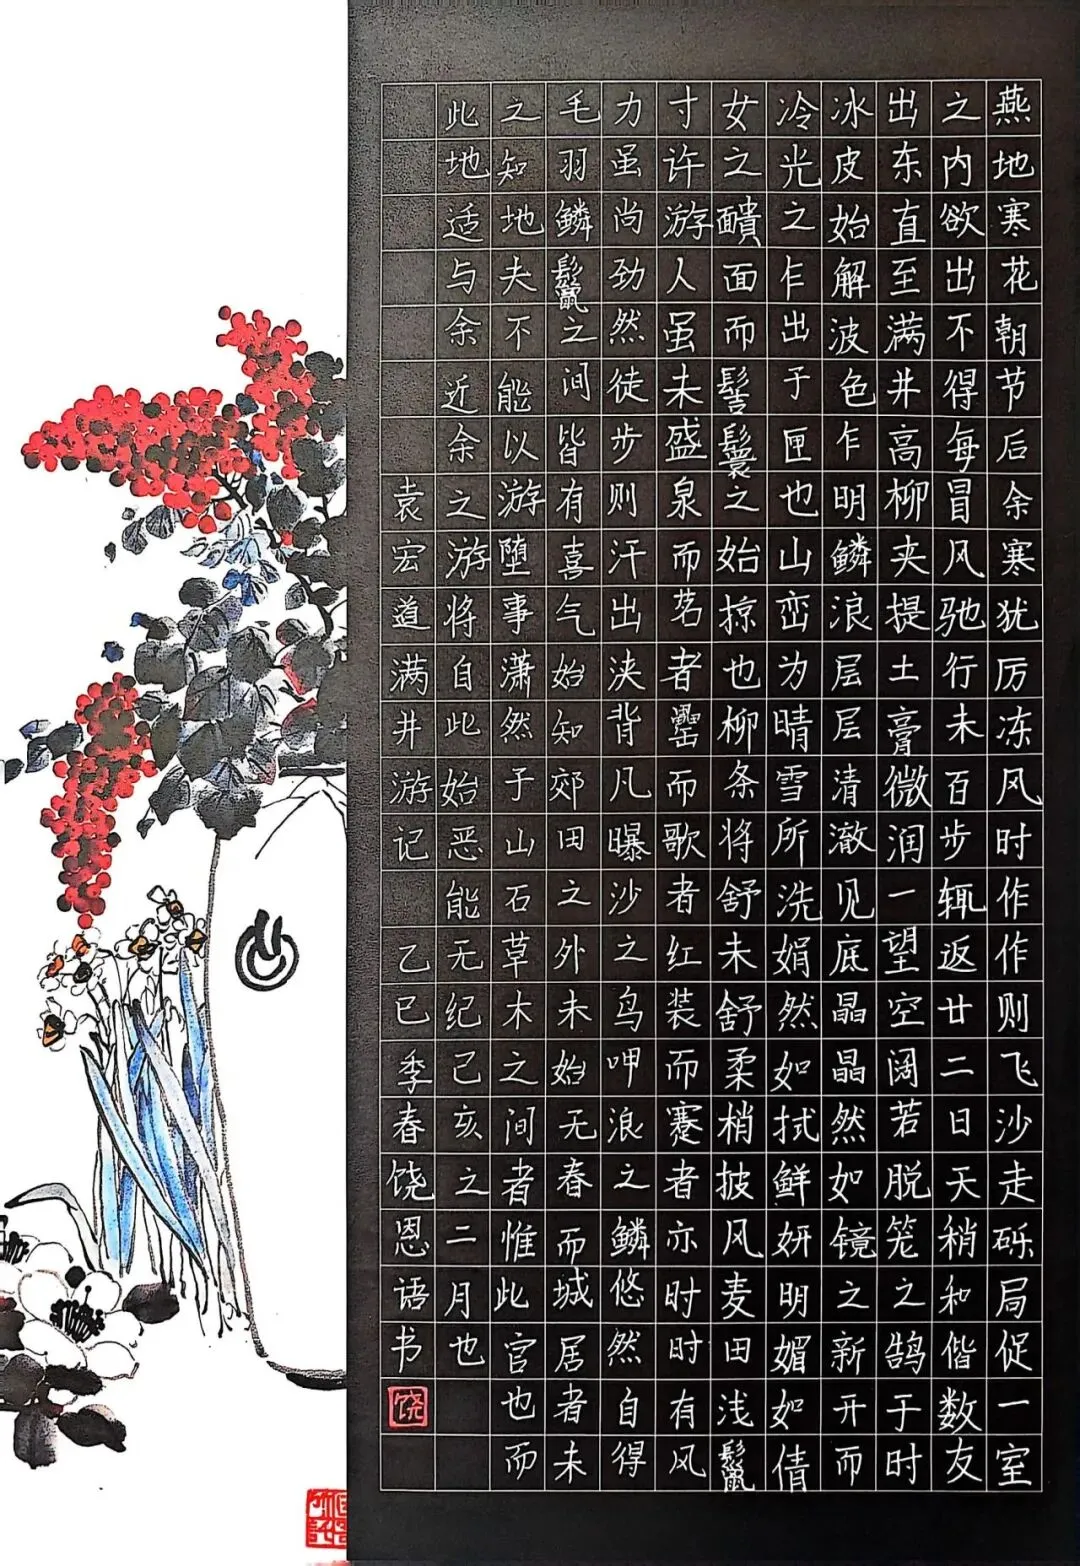 燕地寒花朝节后余寒犹厉冻风时作作则飞沙走砾局促一室
之内欲出不得每冒风驰行未百步辄返廿二日天稍和偕数友
出东直至满井高柳夹提土膏微润一望空阔若脱笼之鹄于时
冰皮始解波色乍明鳞浪层层清澈见底晶晶然如镜之新开而
冷光之乍出于匣也山峦为晴雪所洗娟然如拭鲜妍明媚如倩
女之靧面而髻鬟之始掠也柳条将舒未舒柔梢披风麦田浅鬣
寸许游人虽未盛泉而茗者罍而歌者红装而蹇者亦时时有风
力虽尚劲然徒步则汗出浃背凡曝沙之鸟呷浪之鳞悠然自得
毛羽鳞鬣之间皆有喜气始知郊田之外未始无春而城居者未
之知地夫不能以游堕事潇然于山石草木之间者惟此官也而
此地适与余近余之游将自此始恶能无纪己亥之二月也
袁宏道满井游记 乙巳季春饶恩语书
饶